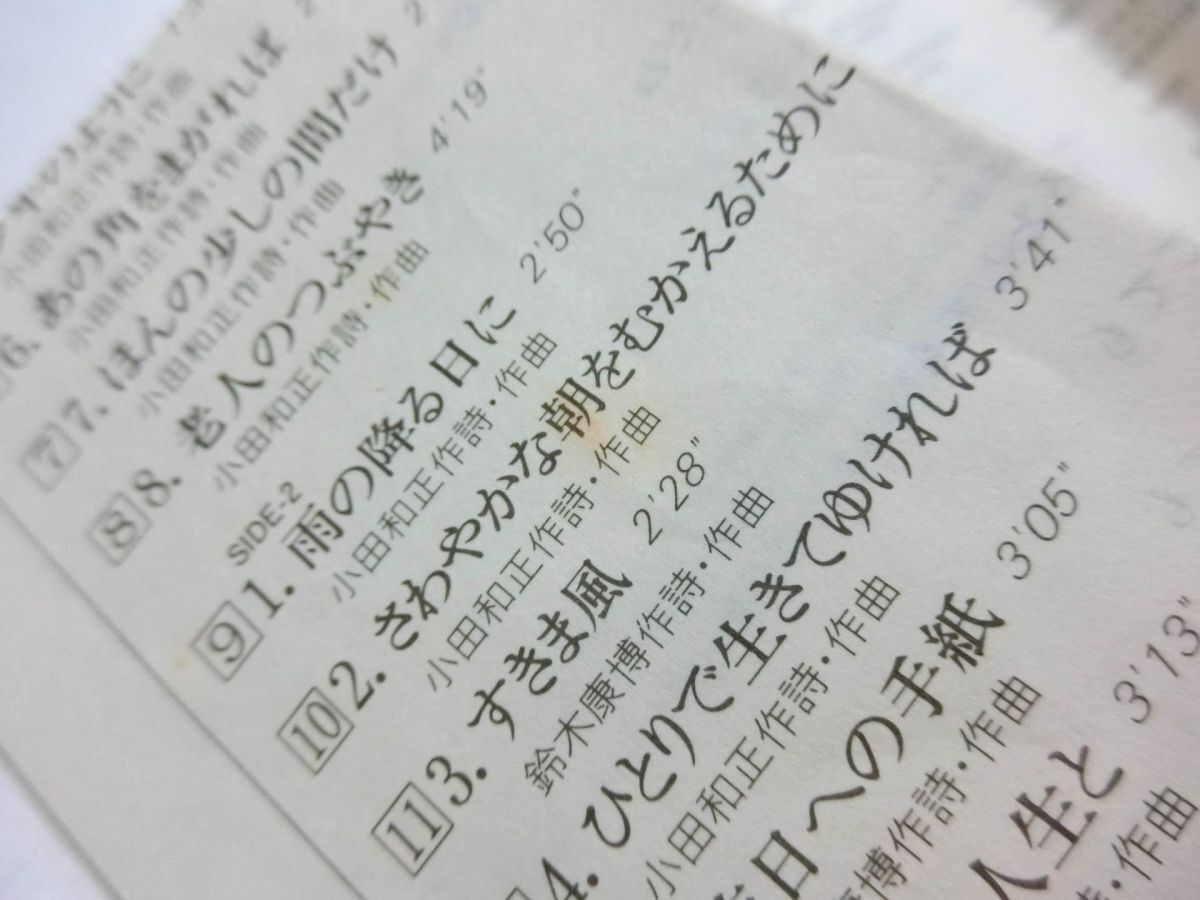 小田和正作詩・作曲
6. あの角をまがれば
小田和正作詩・作曲
7 7. ほんの少しの間だけ
小田和正作詩・作曲
8 8. 老人のつぶやき 4'19"
小田和正作詩・作曲
SIDE-2
9 1. 雨の降る日に 2'50"
小田和正作詩・作曲
10 2. さわやかな朝をむかえるために
小田和正作詩・作曲
11 3. すきま風 2'28"
鈴木康博作詩・作曲
4. ひとりで生きてゆければ 3'41"
小田和正作詩・作曲
日への手紙 3'05"
博作詩・作曲
人生と 3'13"
・作曲